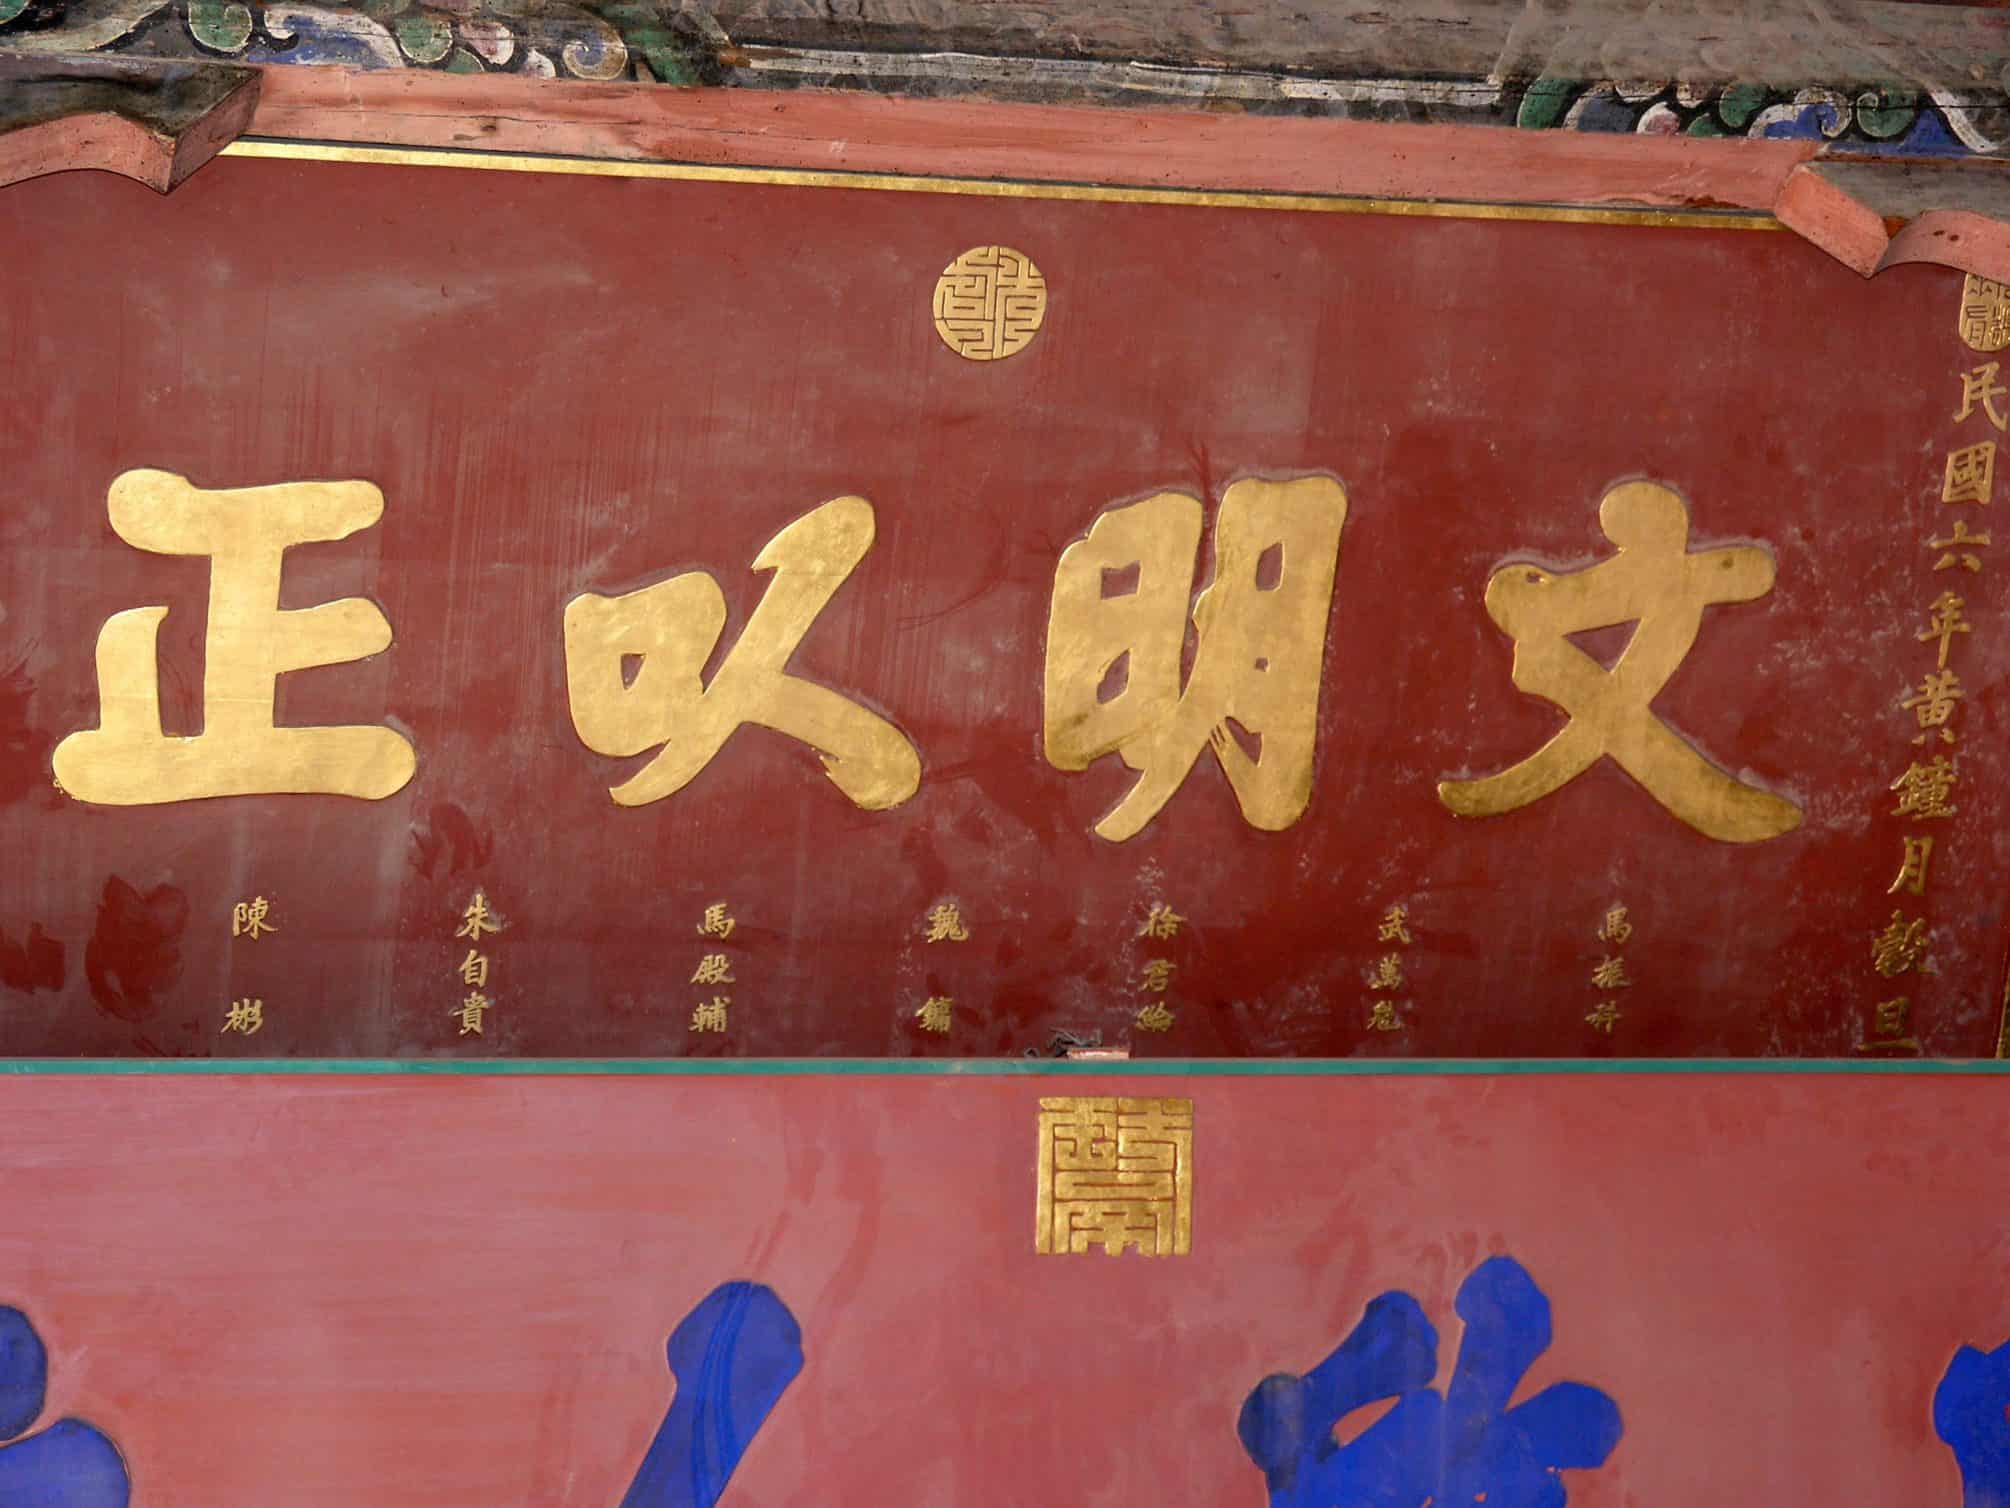 文明以正
民國六年黃鐘月穀旦
馬振
武萬魁
徐君綸
魏鏞
馬殿輔
朱自貴
陳彬